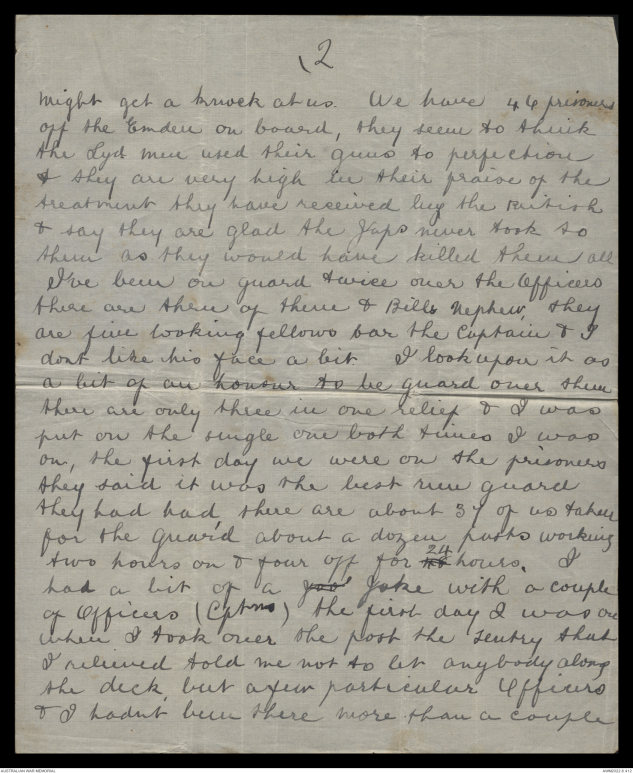 2
might get a knock at us. We have 46 prisoners
off the Emden on board, they seem to think
the Syd men used their guns to perfection
& they are very high in their praise of the
treatment they have received by the British
& say they are glad the Japs never took to
them as they would have killed them all
I've been on guard twice over the Officers
there are three of them & Bills Nephew, they
are fine looking fellows bar the Captain & I
dont like his face a bit I look upon it as
a bit of an honour to be guard over them
there are only three in one relief & I was
put on the single one both times I was
on, the first day we were on the prisoners
they said it was the best run guard
they had had, there are about 37 of us taken
for the guard about a dozen posts working
two hours on & four off for 24 hours. I
had a bit of a Joke with a couple
of Officers (Cptns) the first day I was on
when I took over the post the sentry that
I relieved told me not to let anybody along
the deck, but a few particular Officers
& I hadnt been there more than a couple
AUSTRALIAN WAR MEMORIAL